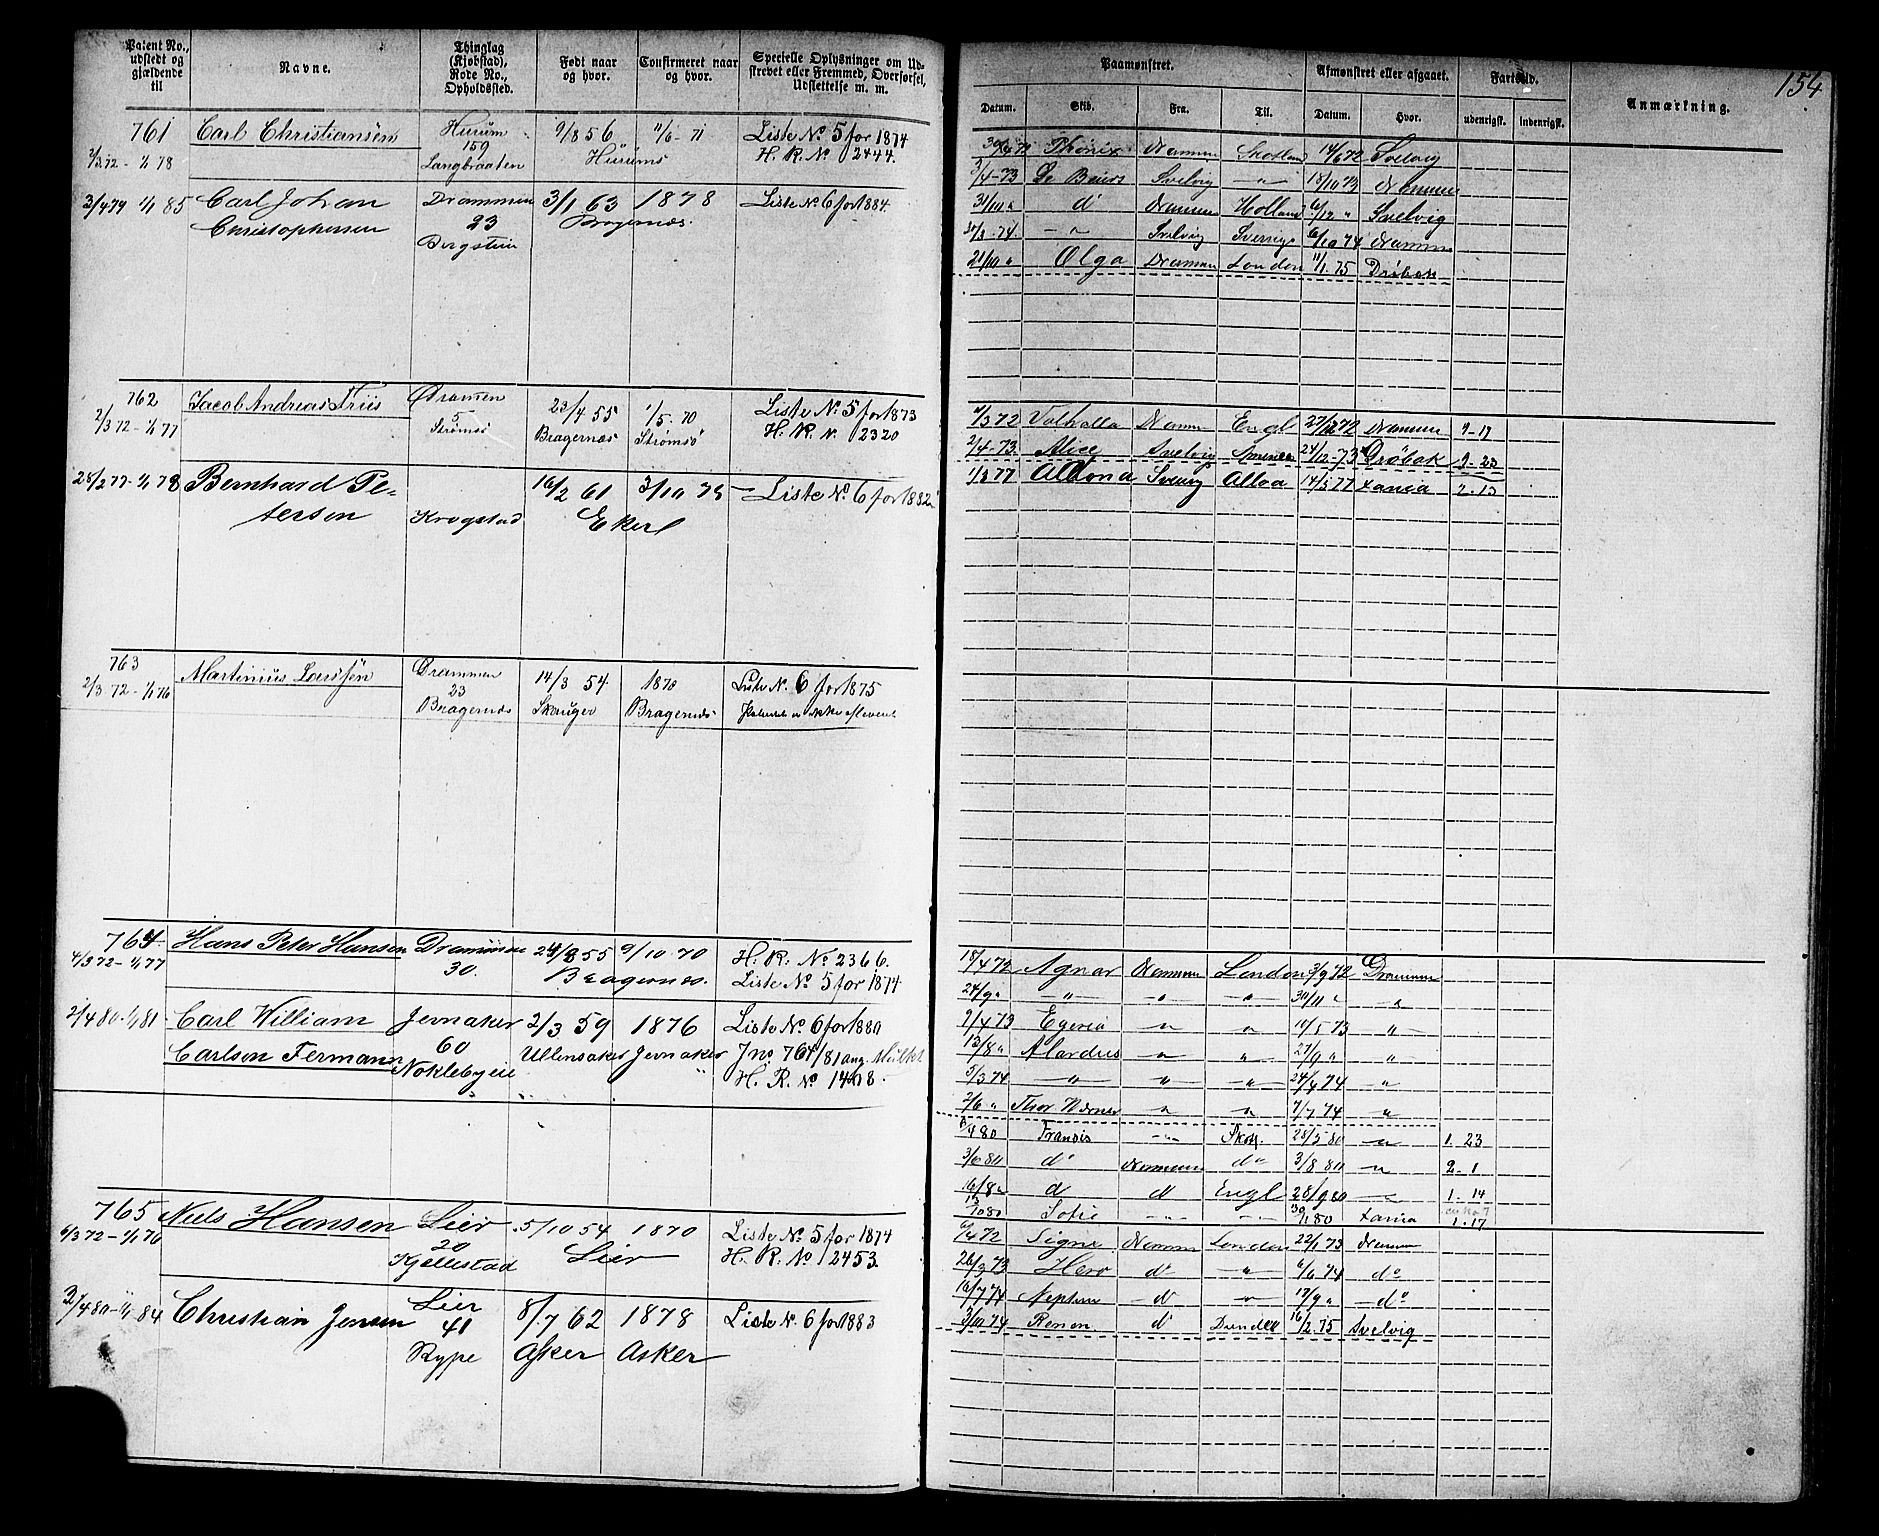 154
Patent No., udstedt og gjældende til
Navne.
Thinglag (Kjøbstad), Rode No., Opholdssted.
Født naar og hvor.
Confirmeret naar og hvor.
Specielle Oplysninger om Udstrevet eller Fremmed, Overførsel, Udslettelse m. m.
Paamønstret.
Afmønstret eller afgaaet.
Fartstid.
Anmærkning.
Datum.
Skib.
Fra.
Til.
Datum.
Hvor.
udenrigsk.
Indenrigsk.
761 Carl Christiansen Hurum 9/8 56 11/6-71 Liste No 5 for 1874
159 Hurums H. R. No 2444.
1/1 78 Langbraaten
3/4 79 1/1 85 Carl Johan Drammen 3/1 63 1878 Liste No 6 for 1884.
Christophersen 23 Bragernæs.
Bergsteen
762 Jacob Andreas Friis Drammen 23/4 55 1/5-70 Liste No 5 for 1873
2/3 72-1/1 77 5 Strømsø Bragernæs Strømsø H. R. N. 2320
1/1 78 Bernhard Pe= 16/2 61 3/10 75 Liste No 6 for 1882
tersen Krogstad Eker
763 Martinius Larssen Drammen 14/3 54 1870 Liste N. 6 for 1875
2/3 72-1/1 76 23
Bragernæs Skouger Bragernæs
764 Hans Peter Hansen Drammen 24/8 55 9/10 70 H. R. No 2366.
4/3 72-1/1 77 30. Bragernæs. Liste No 5 for 1874
2/4 80-1/1 81 Carl William Jevnaker 2/3 59 1876 Liste No 6 for 1880
Carlson Fermann 60 Ullensaker Jevnaker Jno 764/81 ang. Mulkt
Noklebyeie H. R. No 1468.
765 Niels Hansen Lier 5/10 54 1870 Liste No 5 for 1874
6/3 72-1/1 76 20 Lier H. R. No 2453.
Kjellestad
1/1 84 Christian Jensen Lier 8/7 62 1878 Liste N. 6 for 1883
41
Rype Asker Asker
Drammen Skotland 14/6 72 Svelvig
3/4-73 Svelvig -"- 18/10 73 Drammen
31/10 " d Drammen Holland 6/12 " Svelvig
-"- Svelvig Sverrige 6/10 74 Drammen
21/10 " Olga Drammen London 11/1. 75 Drøbak
Valhalla Drammen Engl 72 Drammen 9-19
2/4-73 Alice Svelvig 24/12-73 Drøbak 9-23
1/3 77 Svelvig Alloa 14/5 77 Xania 2.13
18/4 72 Agnar Drammen London 3/9 72 Drammen
24/9 " -"- -"- -"- 30/11 " -"-
2/4 73 Egeria " " 14/5 73 "
13/8 " Alardus " " 27/9 " "
5/3 74 -"- " -"- 24/4 74 "
2/6 " Thor Werner " " 7/7 74 "
Francis -"- Skotl. 28/5 80 -"- 1. 23
3/6 80 d Drammen do 3/8 80 " 2-1
16/8 " d d Engl 28/9 80 -"- 1.14
Sofie -"- -"- Xania
1.17
6/4 72 Signe Drammen London 22/1 73 Drammen
26/3 73 Hero d -"- 6/6 74 do
16/7 74 Neptun d " 17/9 " do
3/10 74 Renen d Dundee 16/2. 75 Svelvig